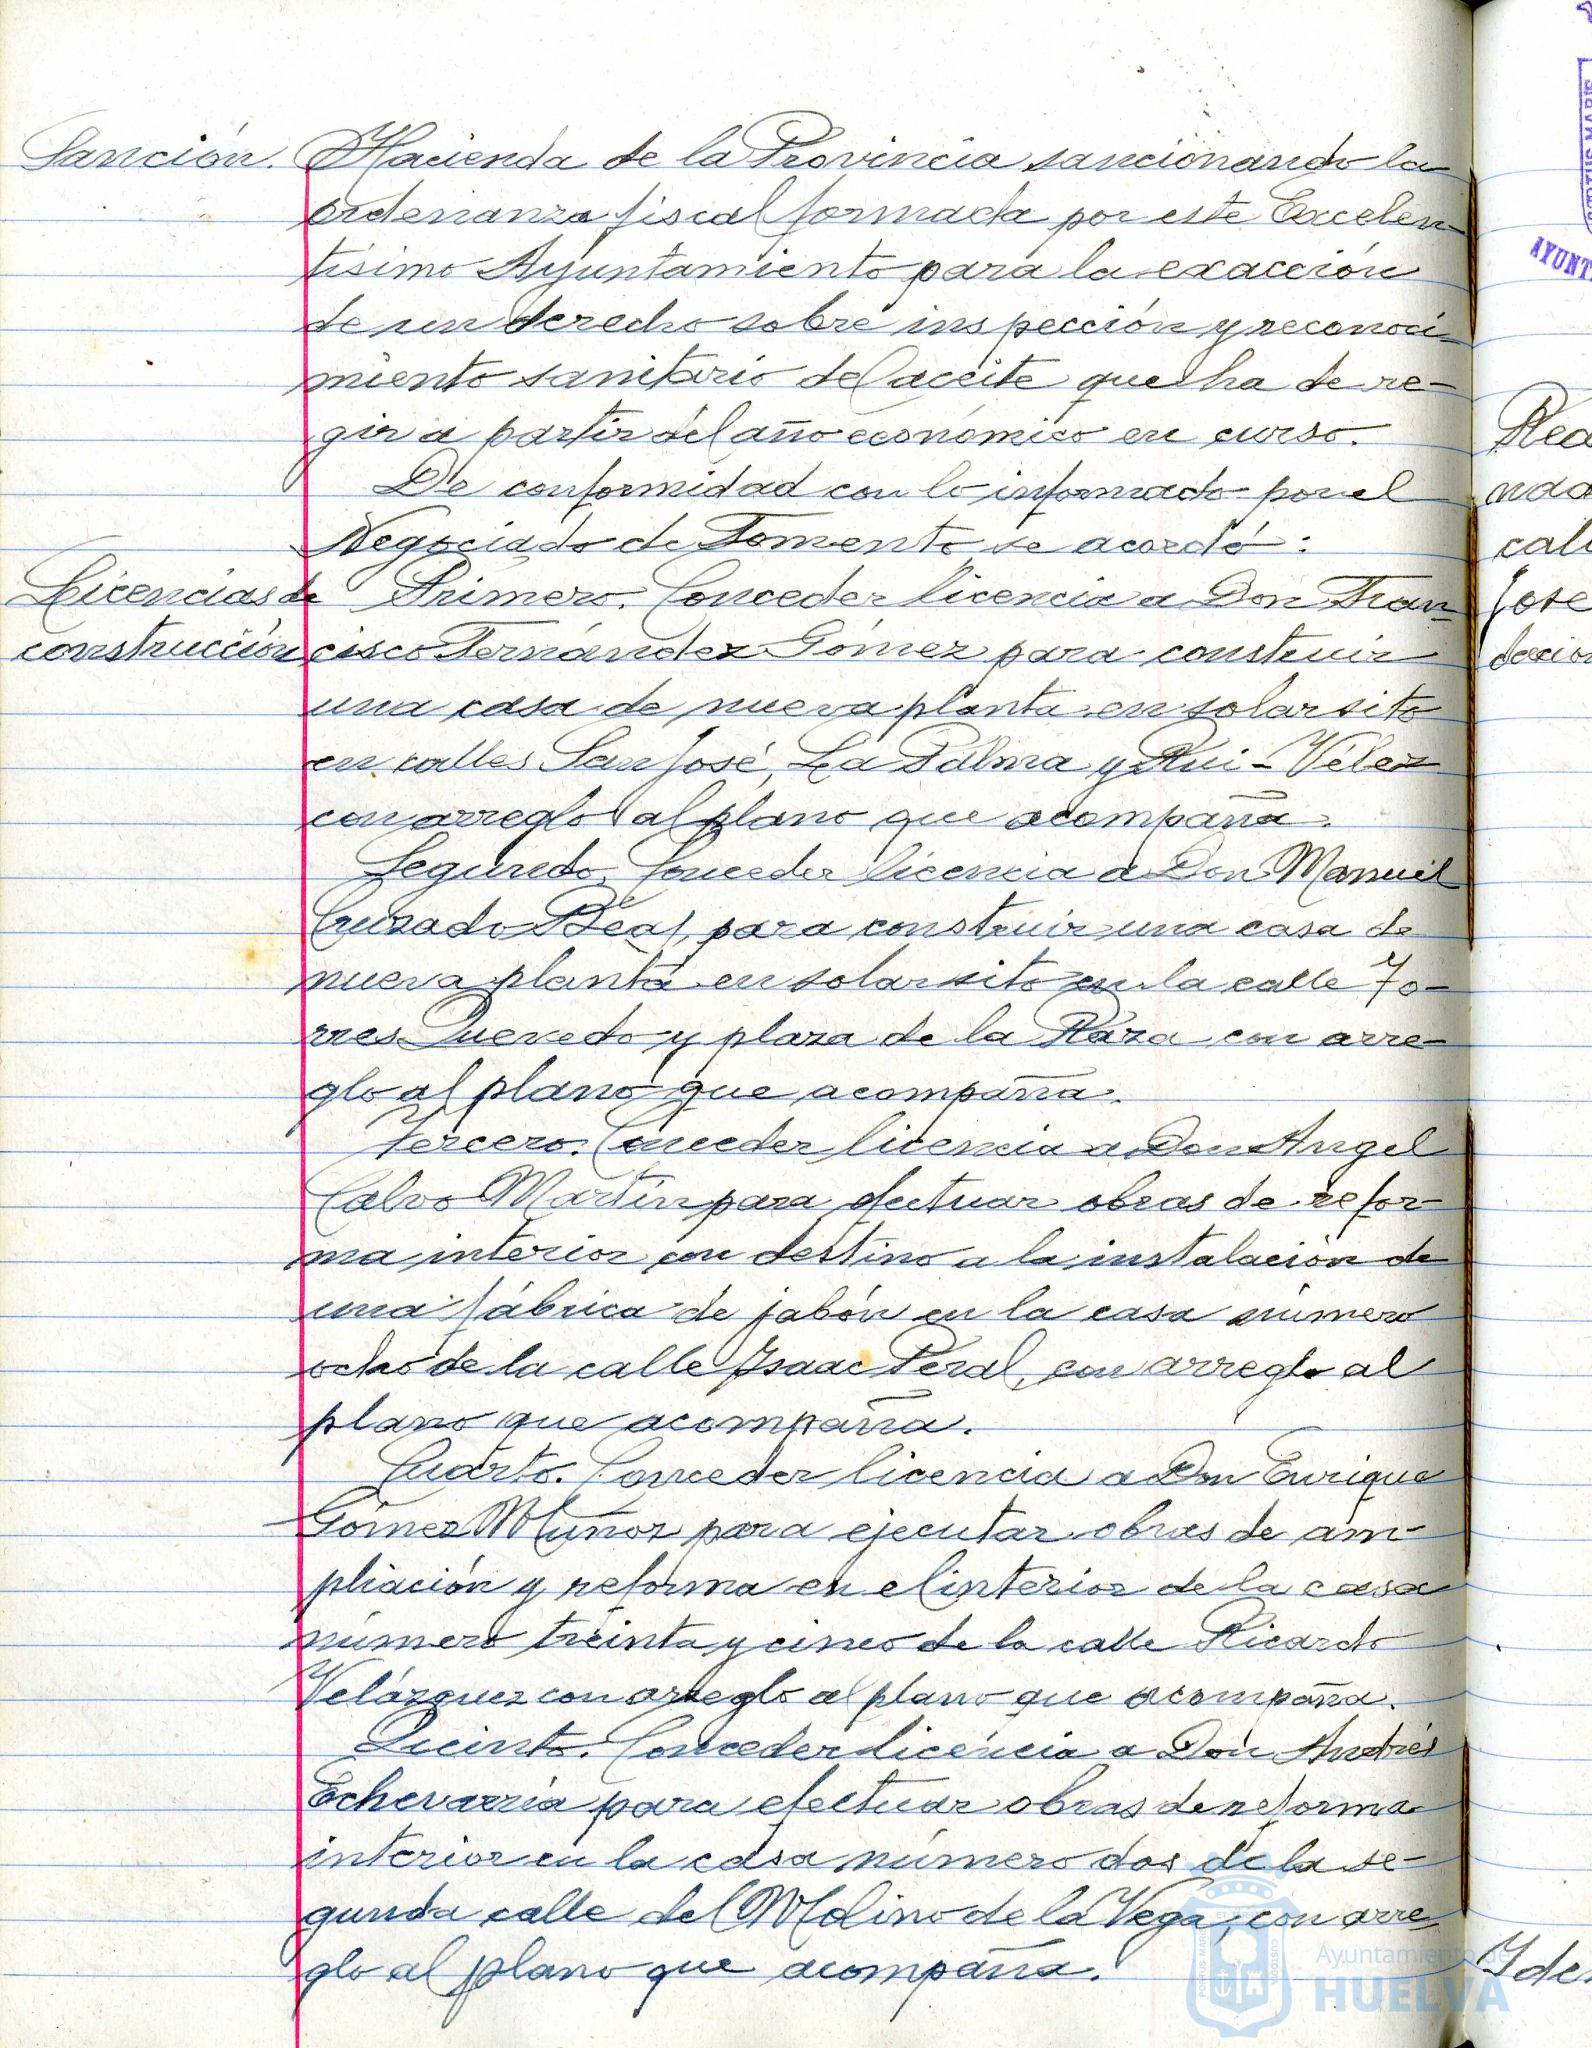 Sanción. Hacienda de la Provincia sancionando la
ordenanza fiscal formada por este Excelen-
tísimo Ayuntamiento para la exacción
de un derecho sobre inspección y reconoci-
miento sanitario del aceite que ha de re-
gir a partir del año económico en curso.
De conformidad con lo informado por el
Negociado de Fomento se acordó:
Licencias de Primero. Conceder licencia a Don Fran-
construcción cisco Fernández Gómez para construir
una casa de nueva planta en solar sito
en calles San José, La Palma y Rui-Vélez
con arreglo al plano que acompaña.
Segundo. Conceder licencia a Don Manuel
Cruzado para construir una casa de
nueva planta en solar sito en la calle To-
rres Quevedo y plaza de la Raza con arre-
glo al plano que acompaña.
Tercero. Conceder licencia a Don Angel
Calvo Martín para efectuar obras de refor-
ma interior con destino a la instalación de
una fábrica de jabón en la casa número
ocho de la calle Isaac Peral, con arreglo al
plano que acompaña.
Cuarto. Conceder licencia a Don Enrique
Gómez Muñoz para ejecutar obras de am-
pliación y reforma en el interior de la casa
número treinta y cinco de la calle Ricardo
Velázquez con arreglo al plano que acompaña.
Quinto. Conceder licencia a Don Andrés
Echevarría para efectuar obras de reforma
interior en la casa número dos de la se-
gunda calle del Molino de la Vega, con arre-
glo al plano que acompaña.
Ayuntamiento de
HUELVA
AYUNT
nda
cali
José